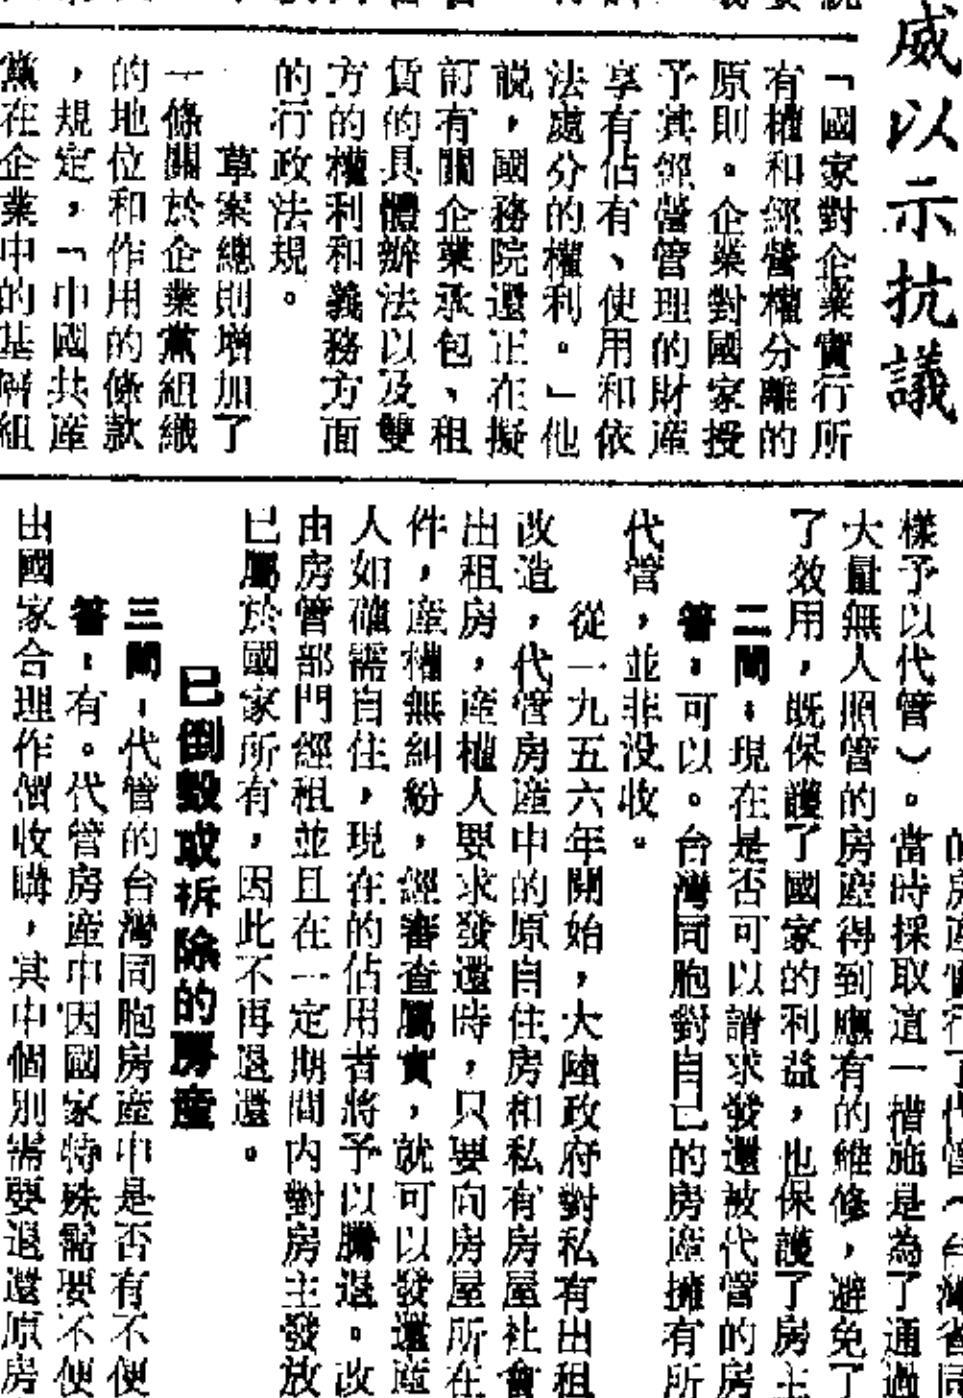 威以示抗議
「國家對企業實行所
有權和經營權分離的
原則。企業對國家授
予其經營管理的財產
享有佔有、使用和依
法處分的權利。」他
說，國務院還正在擬
訂有關企業承包、租
賃的具體辦法以及雙
方的權利和義務方面
的行政法規。
草案總則增加了
一條關於企業黨組織
的地位和作用的條款
，規定，「中國共產
黨在企業中的基層組
的房產實行了代管（台灣省同
樣予以代管）。當時採取這一措施是為了通過
大量無人照管的房產得到應有的維修，避免了
了效用，既保護了國家的利益，也保護了房主
二問：現在是否可以請求發還被代管的房
答：可以。台灣同胞對自己的房產擁有所
代管，並非没收。
從一九五六年開始，大陸政府對私有出租
改造，代管房產中的原自住房和私有房屋社會
出租房，產權人要求發還時，只要向房屋所在
件，產權無糾紛，經審查屬實，就可以發還產
人如確需自住，現在的佔用者將予以騰退。改
由房管部門經租並且在一定期間内對房主發放
已屬於國家所有，因此不再退還。
已倒毀或拆除的房產
三問：代管的台灣同胞房產中是否有不便
答：有。代管房產中因國家特殊需要不便
由國家合理作價收購，其中個別需要退還原房